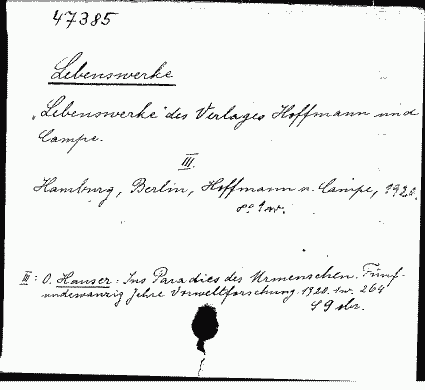 47385
Lebenswerke
"Lebenswerke" des Verlages Hoffmann und
Campe.
III.
Hamburg, Berlin, Hoffmann u. Campe, 1920.
8° 1 w.
III: O. Hauser: Ins Paradies des Urmenschen. Fünf-
undzwanzig Jahre Vorweltforschung. 1920. 1w. 264
S 9